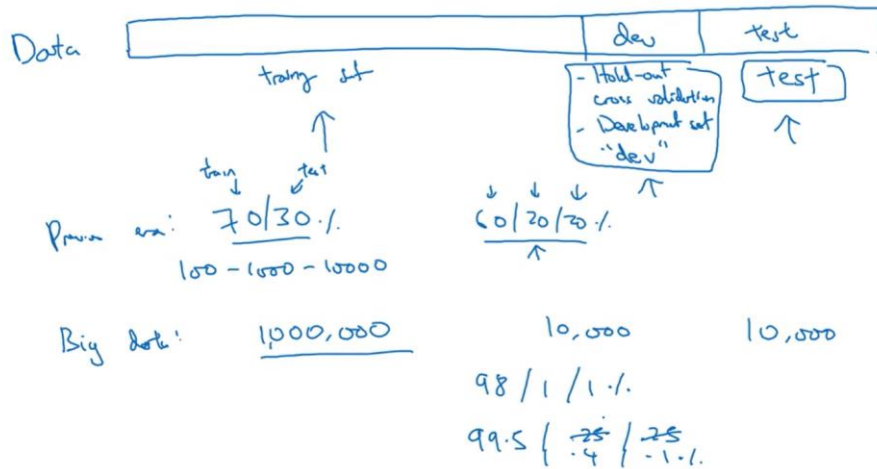 Data dev test
training set
- Hold-out
cross validation
- Development set
"dev"
test
train test
Previous era: 70/30% 60/20/20%
100-1000-10000
Big data: 1,000,000 10,000 10,000
98/1/1%
99.5 / .25 / .25
.4 .1%